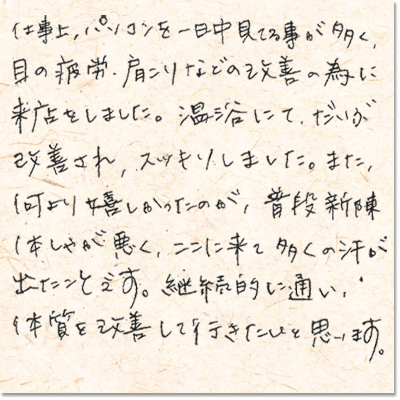 仕事上,パソコンを一日中見てる事が多く,
目の疲労.肩こりなどの改善の為に
来店をしました。温浴にて.だいぶ
改善され,スッキリしました。また,
何より嬉しかったのが,普段新陳
体しゃが悪く,ここに来て多くの汗が
出たことです。継続的に通い,
体質を改善して行きたいと思います。